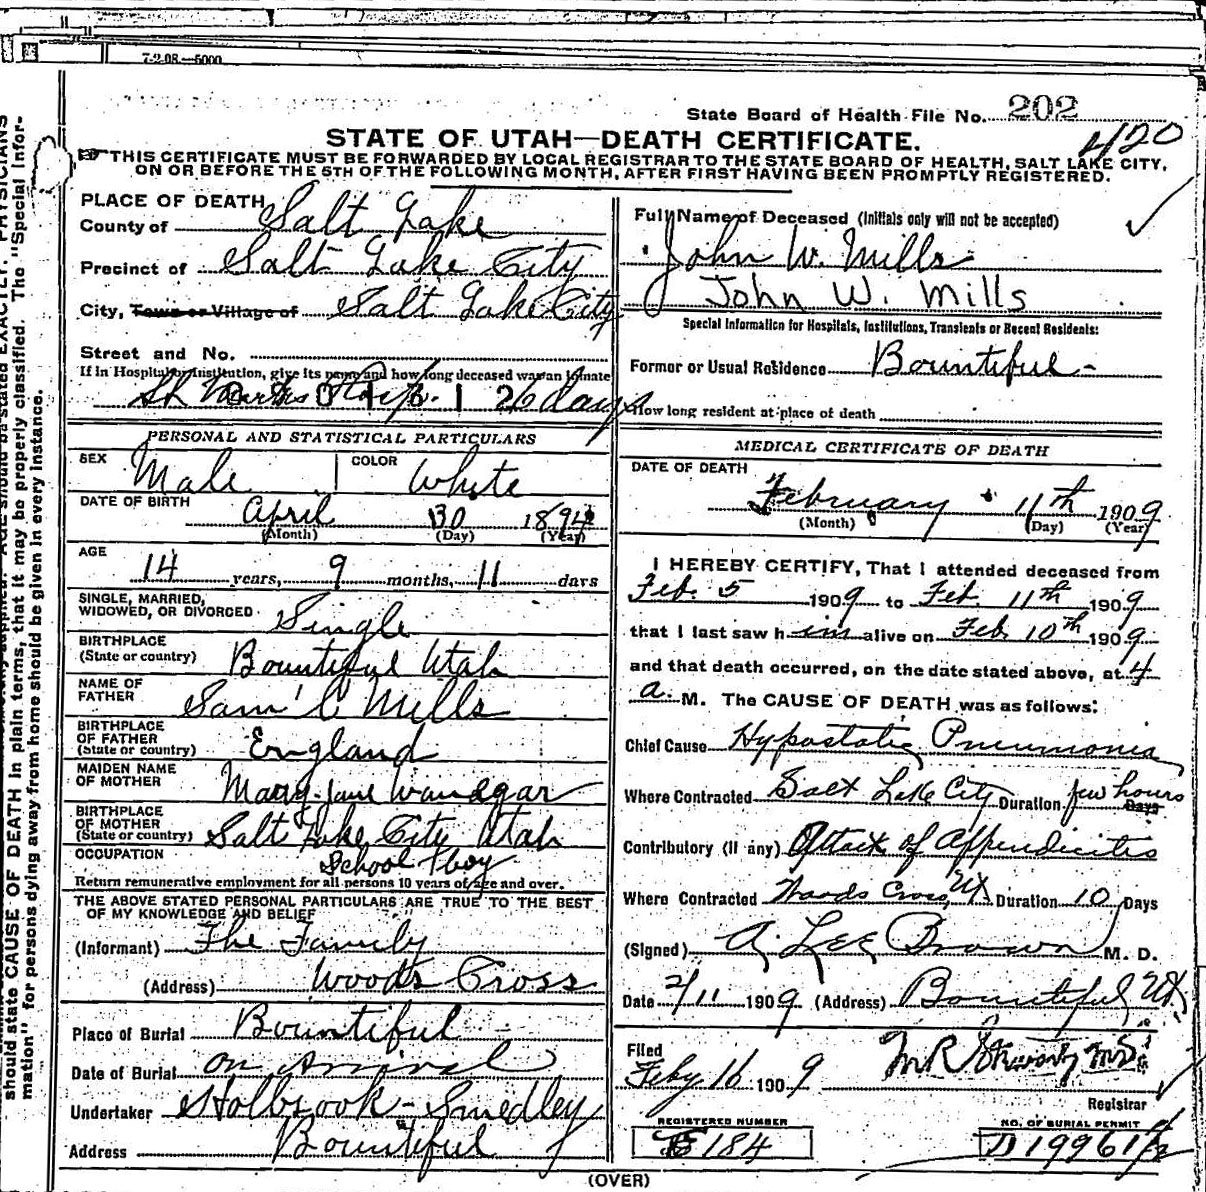 7-2-08.—5000
State Board of Health File No. 202
420
STATE OF UTAH—DEATH CERTIFICATE.
THIS CERTIFICATE MUST BE FORWARDED BY LOCAL REGISTRAR TO THE STATE BOARD OF HEALTH, SALT LAKE CITY,
ON OR BEFORE THE 5TH OF THE FOLLOWING MONTH, AFTER FIRST HAVING BEEN PROMPTLY REGISTERED.
PLACE OF DEATH
County of Salt Lake
Precinct of Salt Lake City
City, Town or Village of Salt Lake City
Street and No.
If in Hospital or Institution, give its name and how long deceased was an inmate
Hosp. 6 days
PERSONAL AND STATISTICAL PARTICULARS
SEX Male COLOR White
DATE OF BIRTH April 30 1894
(Month) (Day) (Year)
AGE
14 years, 9 months, 11 days
SINGLE, MARRIED,
WIDOWED, OR DIVORCED Single
BIRTHPLACE
(State or country) Bountiful Utah
NAME OF
FATHER Sam'l C Mills
BIRTHPLACE
OF FATHER
(State or country) England
MAIDEN NAME
OF MOTHER Mary Jane
BIRTHPLACE
OF MOTHER
(State or country) Salt Lake City Utah
OCCUPATION School Boy
Return remunerative employment for all persons 10 years of age and over.
THE ABOVE STATED PERSONAL PARTICULARS ARE TRUE TO THE BEST
OF MY KNOWLEDGE AND BELIEF
(Informant) The Family
(Address) Woods Cross
Place of Burial Bountiful
Date of Burial on arrival
Undertaker Holbrook - Smedley
Address Bountiful
Full Name of Deceased (Initials only will not be accepted)
John W. Mills
John W. Mills
Special Information for Hospitals, Institutions, Transients or Recent Residents:
Former or Usual Residence Bountiful -
How long resident at place of death
MEDICAL CERTIFICATE OF DEATH
DATE OF DEATH
February 11th 1909
(Month) (Day) (Year)
I HEREBY CERTIFY, That I attended deceased from
Feb. 5 1909 to Feb. 11th 1909
that I last saw him alive on Feb 10th 1909
and that death occurred, on the date stated above, at 4
a. M. The CAUSE OF DEATH was as follows:
Chief Cause Hypostatic Pneumonia
Where Contracted Salt Lake City Duration few hours Days
Contributory (if any) Attack of Appendicitis
Where Contracted Woods Cross, Ut Duration 10 Days
(Signed) A. Lee Brown M. D.
Date 2/11 1909 (Address) Bountiful Ut
Filed
Feby 16 1909
Registrar
REGISTERED NUMBER
E 184
NO. OF BURIAL PERMIT
D 19961
(OVER)
should state CAUSE OF DEATH in plain terms, that it may be properly classified. The "Special Infor-
mation" for persons dying away from home should be given in every instance.